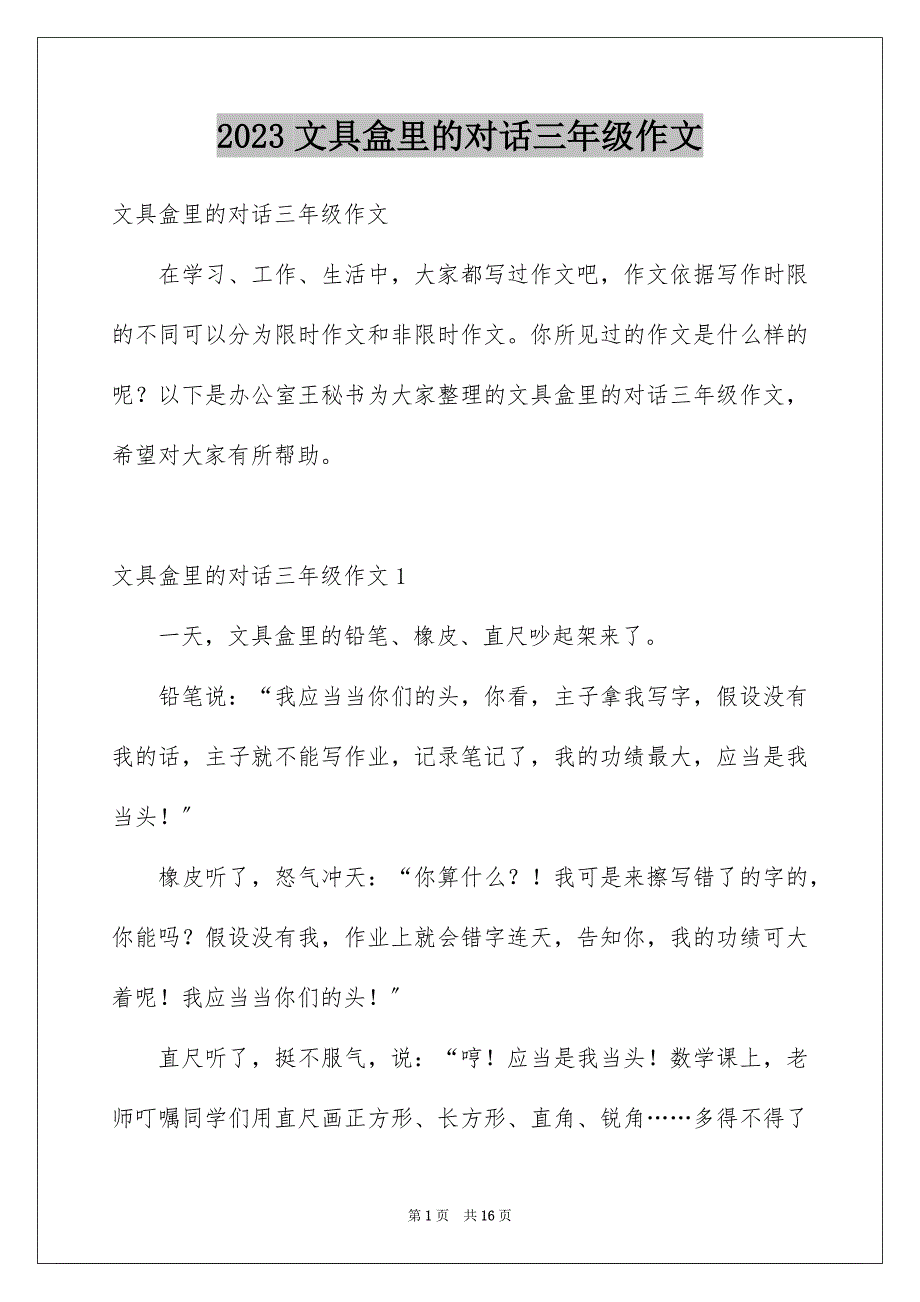 2023文具盒里的对话三年级作文
文具盒里的对话三年级作文
在学习、工作、生活中，大家都写过作文吧，作文依据写作时限
的不同可以分为限时作文和非限时作文。你所见过的作文是什么样的
呢？以下是办公室王秘书为大家整理的文具盒里的对话三年级作文，
希望对大家有所帮助。
文具盒里的对话三年级作文1
一天，文具盒里的铅笔、橡皮、直尺吵起架来了。
铅笔说：“我应当当你们的头，你看，主子拿我写字，假设没有
我的话，主子就不能写作业，记录笔记了，我的功绩最大，应当是我
当头！〞
橡皮听了，怒气冲天：“你算什么？！我可是来擦写错了的字的，
你能吗？假设没有我，作业上就会错字连天，告知你，我的功绩可大
着呢！我应当当你们的头！〞
直尺听了，挺不服气，说：“哼！应当是我当头！数学课上，老
师叮嘱同学们用直尺画正方形、长方形、直角、锐角……多得不得了
第1页 共16页